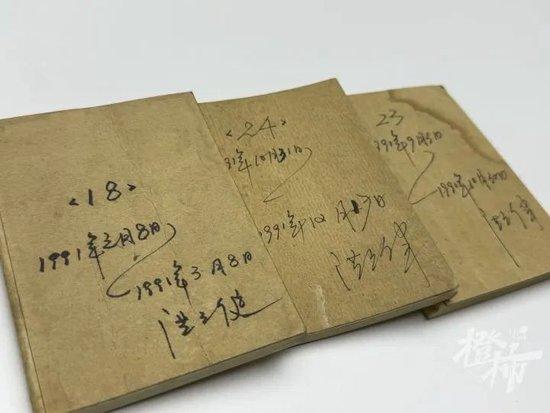 <18>
1991年2月8日
1991年3月8日
<24>
91年10月31日
1991年12月
23
991年9月5日
1991年10月30日
橙柿